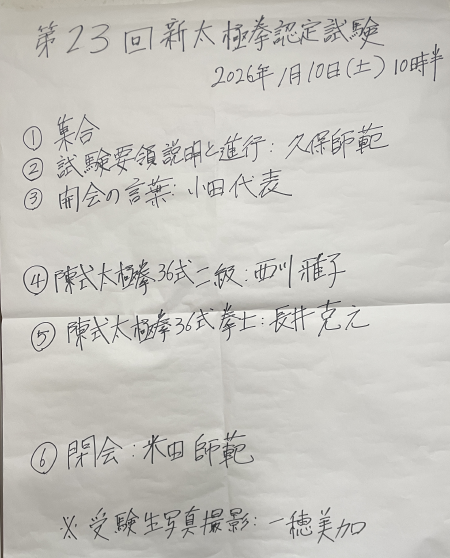 第23回新太極拳認定試験
2026年1月10日(土) 10時半
① 集合
② 試験要領説明と進行: 久保師範
③ 開会の言葉: 小田代表
④ 陳式太極拳36式二級: 西川雅子
⑤ 陳式太極拳36式拳士: 長井克元
⑥ 閉会: 米田師範
※ 受験生写真撮影: 一穂美加